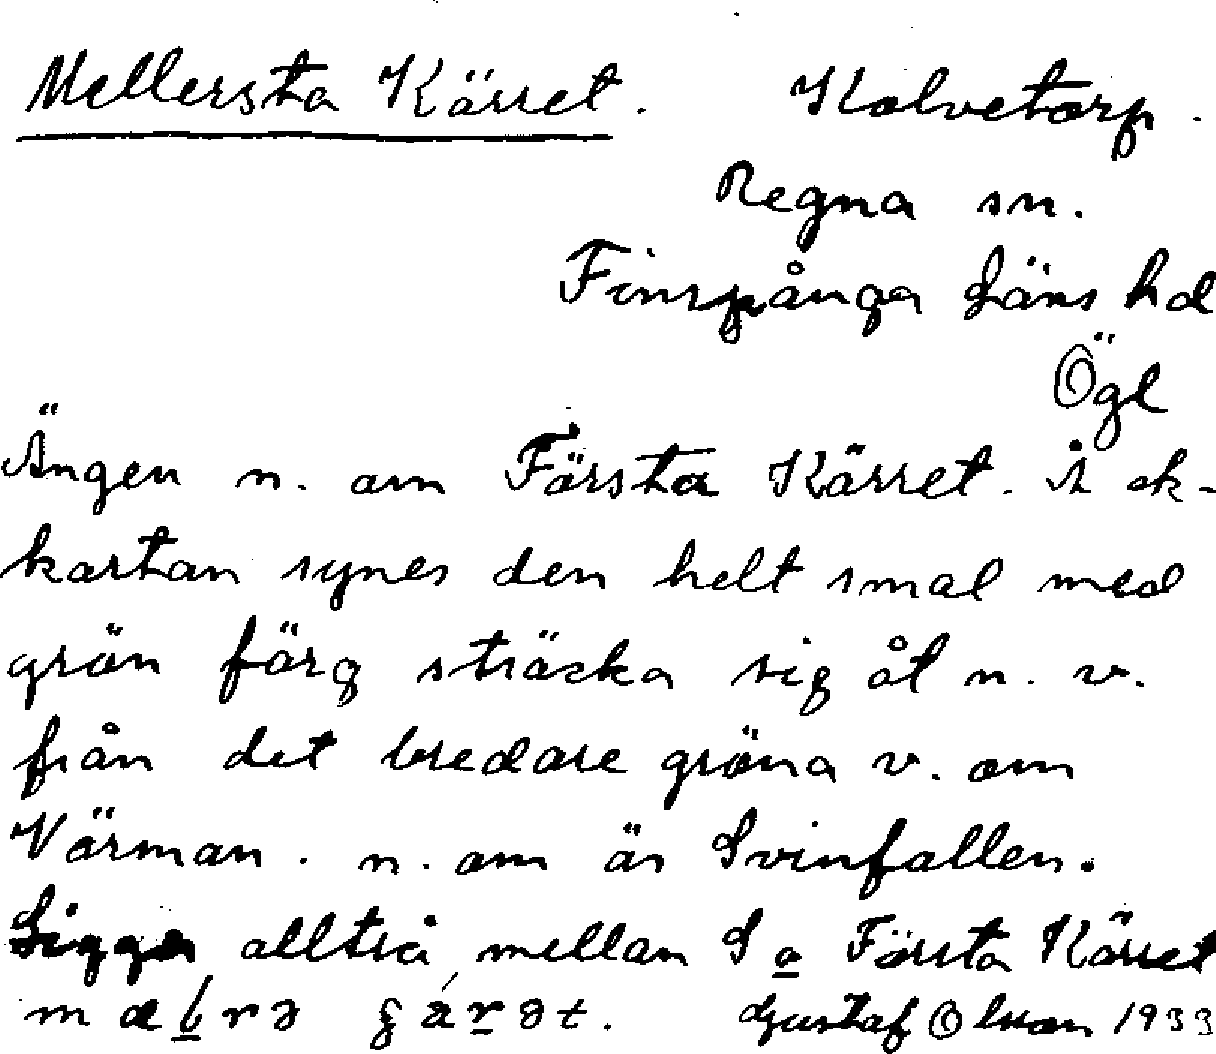 Mellersta Kärret. Kalvetorp.
Regna sn.
Finspånga Läns hd
Ögl
Ängen n. om Första Kärret. Å ek-
kartan synes den helt smal med
grön färg sträcka sig åt n. v.
från det bredare gröna v. om
Värman. n. om är Svinfallen.
Ligger alltså mellan S o Första Kärret
Gustaf Olson 1933